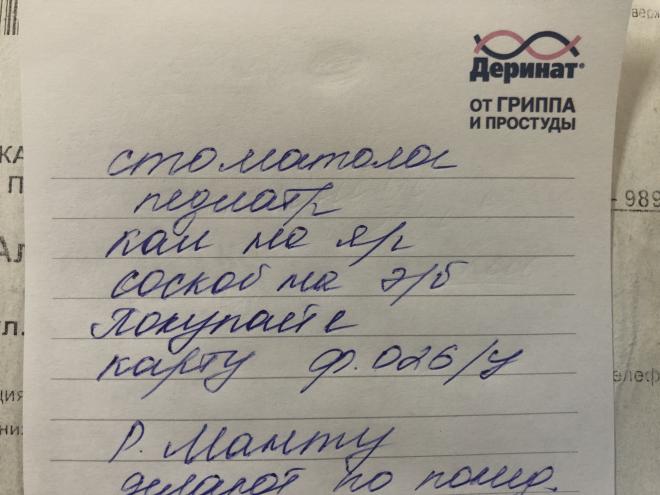 Деринат®
ОТ ГРИППА
И ПРОСТУДЫ
стоматолог
педиатр
кал на я/г
соскоб на э/б
Покупайте
карту ф. 026/у
Р. Манту
делают по понед.
КА
П
Ал
ул.
989
елеф
ция